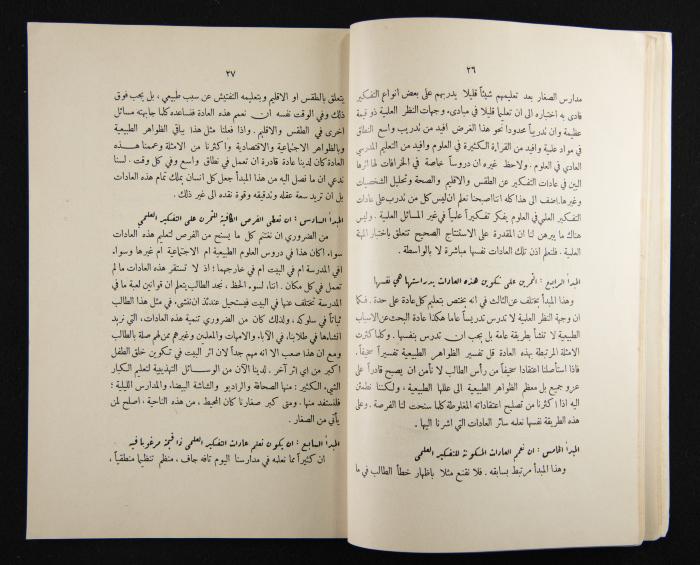 ٢٦
مدارس الصغار بعد تعليمهم شيئاً قليلا يدربهم على بعض انواع التفكير
فادى به اختباره الى ان تعليما قليلا في مبادىء وجهات النظر العلمية ذو قيمة
عظيمة وان تدريباً محدوداً نحو هذا الغرض افيد من تدريب واسع النطاق
في مواد علمية وافيد من القراءة الكثيرة في العلوم وافيد من التعليم المدرسي
العادي في العلوم . ولاحظ غيره ان دروساً خاصة في الخرافات لها اثرها
البين في عادات التفكير عن الطقس والاقليم والصحة وتحليل الشخصيات
وغيرها . اضف الى هذا كله اننا اصبحنا نعلم ان ليس كل من تدرب على عادات
التفكير العلمي في العلوم يفكر تفكيراً علمياً في غير المسائل العلمية . وليس
هناك ما يبرهن لنا ان المقدرة على الاستنتاج الصحيح تتعلق باختبار المهنة
العلمية . فلنعلم اذن تلك العادات نفسها مباشرة لا بالواسطة .
المبدأ الرابع : التمرين على تكوين هذه العادات بدراستها هي نفسها
وهذا المبدأ يختلف عن الثالث في انه يختص بتعليم كل عادة على حدة . فكما
ان وجهة النظر العلمية لا تدرس تدريساً عاما هكذا عادة البحث عن الاسباب
الطبيعية لا تنشأ بطريقة عامة بل يجب ان تدرس بنفسها . وكلما كثرت
الامثلة المرتبطة بهذه العادة قل تفسير الظواهر الطبيعية تفسيراً سخيفاً .
فاذا استأصلنا اعتقاداً سخيفاً من رأس الطالب لا نأمن ان يصبح قادراً على
عزو جميع بل معظم الظواهر الطبيعية الى عللها الطبيعية ، ولكننا نطمئن
اليه اذا اكثرنا من تصليح اعتقاداته المغلوطة كلما سنحت لنا الفرصة . وعلى
هذه الطريقة نفسها نعلمه سائر العادات التي اشرنا اليها .
المبدأ الخامس : ان نعمم العادات المكونة للتفكير العلمي
وهذا المبدأ مرتبط بسابقه . فلا نقنع مثلا باظهار خطأ الطالب في ما
٢٧
يتعلق بالطقس او الاقليم وبتعليمه التفتيش عن سبب طبيعي ، بل يجب فوق
ذلك وفي الوقت نفسه ان نعمم هذه العادة فنساعده كلما جابهته مسائل
اخرى في الطقس والاقليم . واذا فعلنا مثل هذا بباقي الظواهر الطبيعية
وبالظواهر الاجتماعية والاقتصادية واكثرنا من الامثلة وعممنا هذه
العادة كان لدينا عادة قادرة ان تعمل في نطاق واسع وفي كل وقت . لسنا
ندعي ان ما نصل اليه من هذا المبدأ جعل كل انسان يملك تمام هذه العادات
بل ان تريد سعة عقله وتدقيقه وقوة نقده الى غير ذلك .
المبدأ السادس : ان نعطي الفرص الكافية للتمرن على التفكير العلمي
من الضروري ان نغتنم كل ما يسنح من الفرص لتعليم هذه العادات
سواء اكان هذا في دروس العلوم الطبيعية ام الاجتماعية ام غيرها وسواء
افي المدرسة ام في البيت ام في خارجهما ؛ اذ لا تستقر هذه العادات ما لم
تعمل في كل مكان . اننا ، لسوء الحظ ، نجد الطالب يتعلم ان قوانين لعبة ما في
المدرسة تختلف عنها في البيت فيستحيل عندئذ ان ننشىء في مثل هذا الطالب
ثباتاً في سلوكه . ولذلك كان من الضروري تنمية هذه العادات ، التي نريد
انشاءها في طلابنا ، في الآباء والامهات والمعلمين وغيرهم ممن لهم صلة بالطالب
ومع ان هذا صعب الا انه مهم جداً لان اثر البيت في تكوين خلق الطفل
اكبر من اي اثر آخر . لدينا الآن من الوسائل التهذيبية لتعليم الكبار
الشيء الكثير : منها الصحافة والراديو والشاشة البيضاء والمدارس الليلية ؛
فلنستفد منها . ومتى كبر صغارنا كان المحيط ، من هذه الناحية ، اصلح لمن
يأتي من الصغار .
المبدأ السابع : ان يكون تعلم عادات التفكير العلمي ذا قيمة مرغوبا فيه
ان كثيراً مما نعلمه في مدارسنا اليوم تافه جاف ، منظم تنظيما منطقياً ،